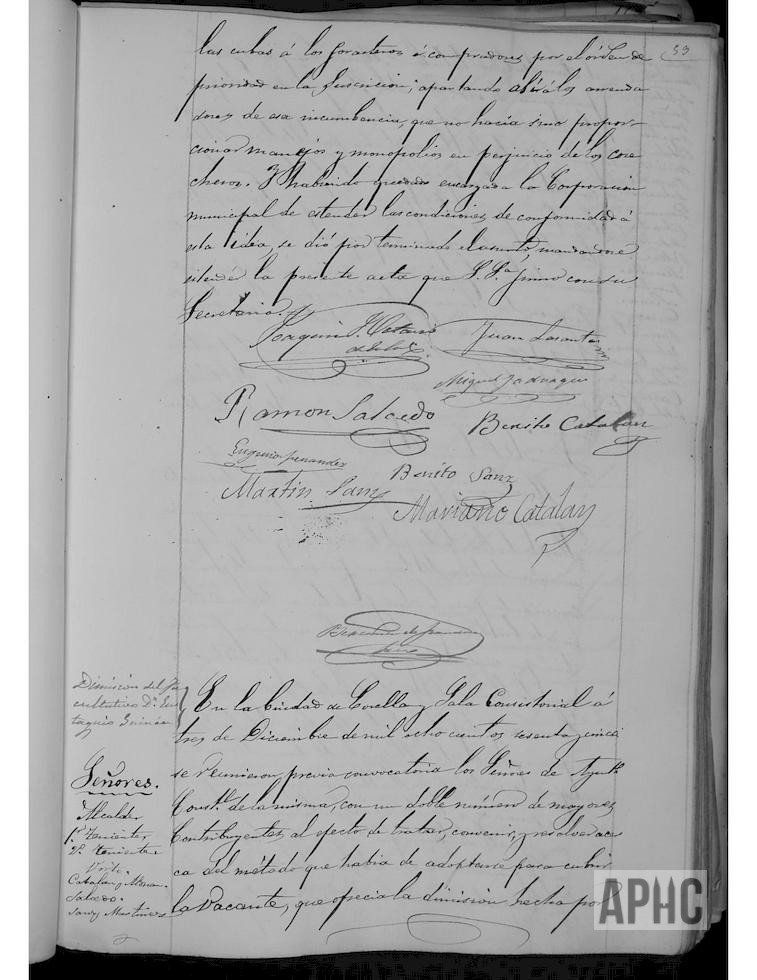 53
las cubas á los forasteros ó compradores por el órden de
prioridad en la suscricion; apartando asi á los arrenda
dores de esa incumbencia, que no hacia sino propor-
cionar manejos y monopolios en perjuicio de los cose
cheros. Y habiendo quedado encargada la Corporacion
municipal de estender las condiciones de conformidad á
esta idea, se dió por terminado el asunto, mandandose
estender la presente acta que S. Sª. firmó con su
Secretario.
Joaquin
de la
Juan
Miguel
Ramon Salcedo
Benito Catalan
Eugenio Fernandez
Benito Sanz
Martin Sanz
Mariano Catalan
Dimision del Fa
cultativo Dn. Eus
taquio
En la Ciudad de Corella y Sala Consistorial á
tres de Diciembre de mil ocho cientos sesenta y cinco
se reunieron previa convocatoria los Señores de Ayuntº.
Constl. de la misma, con un doble número de mayores
Contribuyentes al efecto de tratar, convenir, y resolver acer
ca del método que habia de adoptarse para cubrir
la vacante, que ofrecia la dimision hecha por
Señores.
Alcalde
1r. Teniente
2º. Teniente
Catalan y
Salcedo.
Sanz y Martinez
APHC